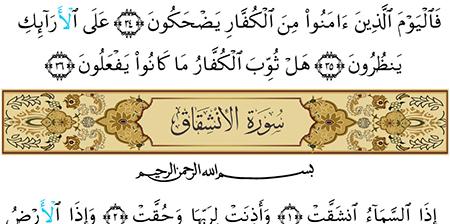 فَٱلْيَوْمَ ٱلَّذِينَ ءَامَنُوا۟ مِنَ ٱلْكُفَّارِ يَضْحَكُونَ ﴿٣٤﴾ عَلَى ٱلْأَرَآئِكِ
يَنظُرُونَ ﴿٣٥﴾ هَلْ ثُوِّبَ ٱلْكُفَّارُ مَا كَانُوا۟ يَفْعَلُونَ ﴿٣٦﴾
سورة الانشقاق
بسم الله الرحمن الرحيم
إِذَا ٱلسَّمَآءُ ٱنشَقَّتْ ﴿١﴾ وَأَذِنَتْ لِرَبِّهَا وَحُقَّتْ ﴿٢﴾ وَإِذَا ٱلْأَرْضُ